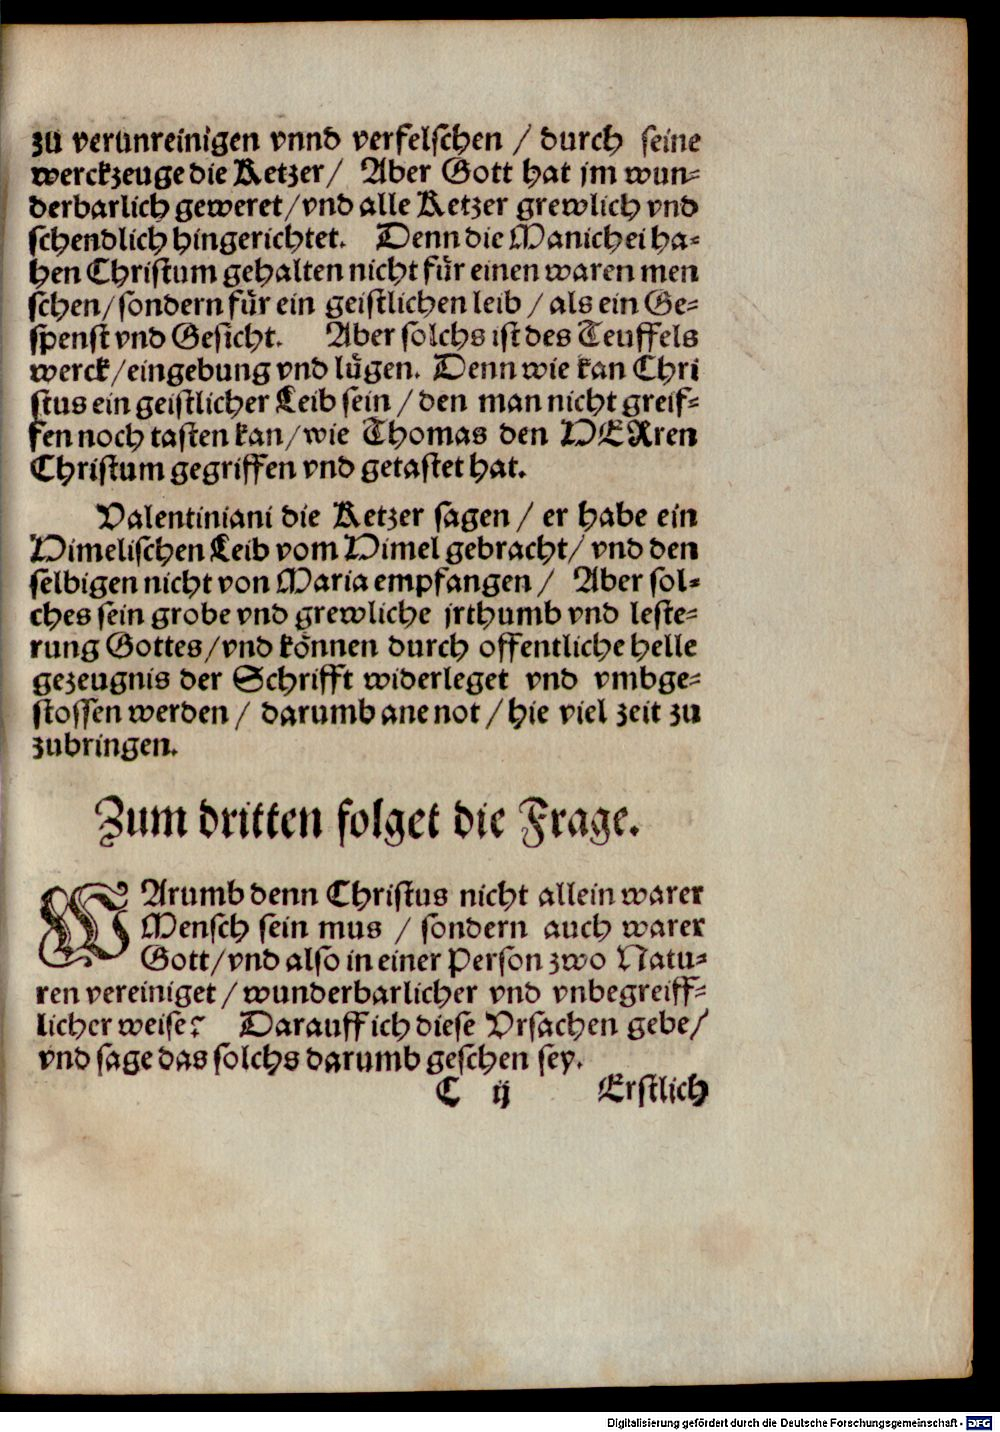 zu verunreinigen vnnd verfelschen / durch seine
werckzeuge die Ketzer / Aber Gott hat jm wun-
derbarlich geweret / vnd alle Ketzer grewlich vnd
schendlich hingerichtet. Denn die Manichei ha-
hen Christum gehalten nicht für einen waren men
schen / sondern für ein geistlichen leib / als ein Ge-
spenst vnd Gesicht. Aber solchs ist des Teuffels
werck / eingebung vnd lügen. Denn wie kan Chri
stus ein geistlicher Leib sein / den man nicht greif-
fen noch tasten kan / wie Thomas den HERren
Christum gegriffen vnd getastet hat.
Valentiniani die Ketzer sagen / er habe ein
Himelischen Leib vom Himel gebracht / vnd den
selbigen nicht von Maria empfangen / Aber sol-
ches sein grobe vnd grewliche jrthumb vnd leste-
rung Gottes / vnd können durch offentliche helle
gezeugnis der Schrifft widerleget vnd vmbge-
stossen werden / darumb ane not / hie viel zeit zu
zubringen.
Zum dritten folget die Frage.
WArumb denn Christus nicht allein warer
Mensch sein mus / sondern auch warer
Gott / vnd also in einer Person zwo Natu-
ren vereiniget / wunderbarlicher vnd vnbegreiff-
licher weise? Darauff ich diese Vrsachen gebe /
vnd sage das solchs darumb geschen sey.
C ij Erstlich
Digitalisierung gefördert durch die Deutsche Forschungsgemeinschaft - DFG